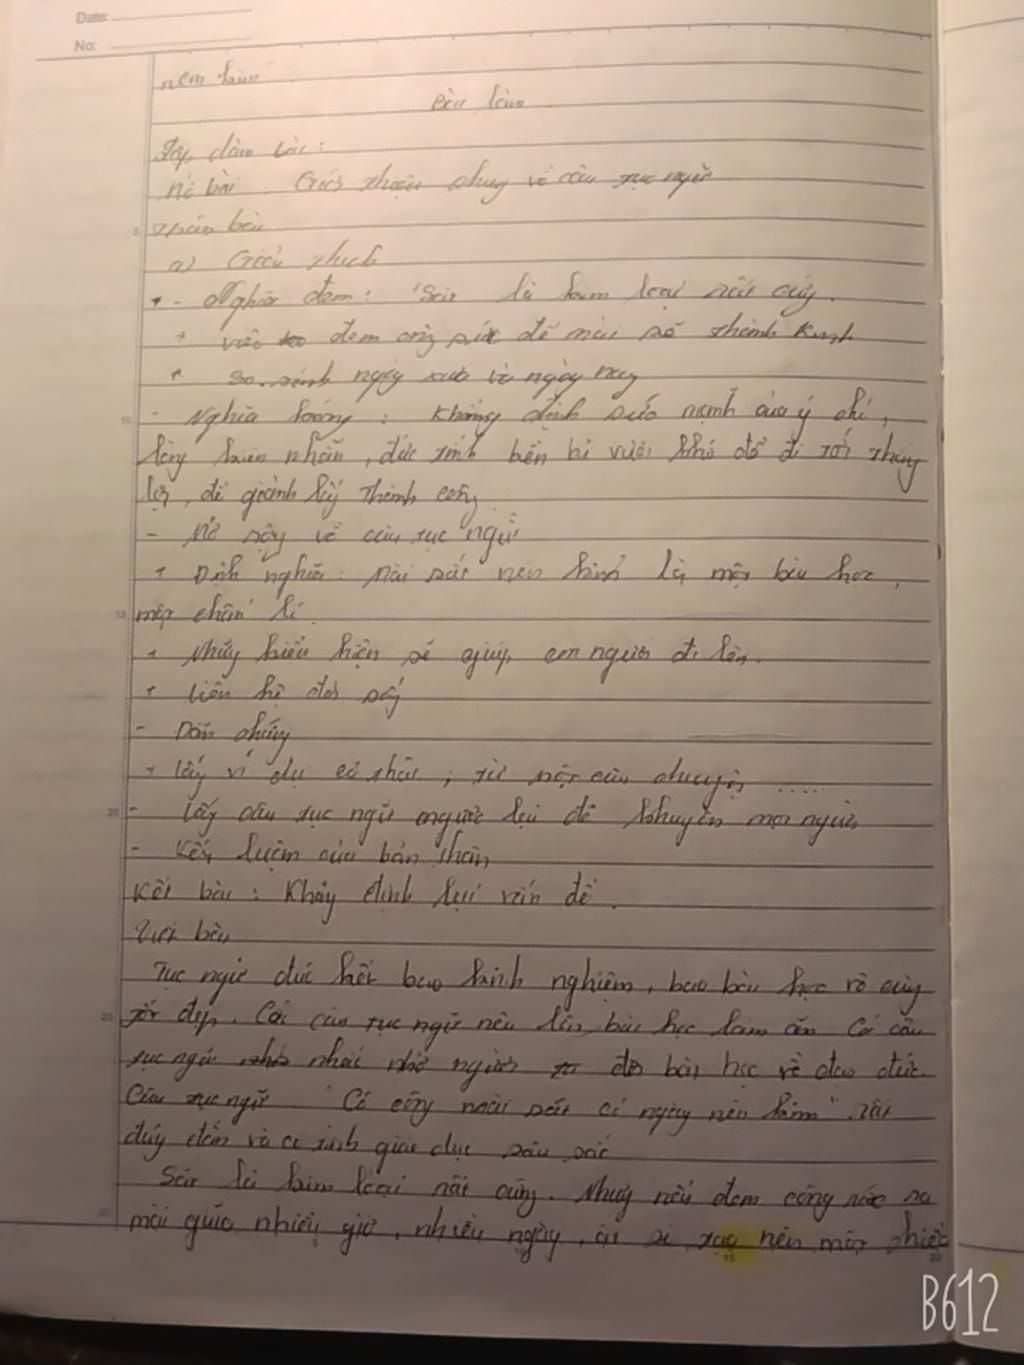 Date:
No:
nên kim
Bài làm
Lập dàn bài:
Mở bài: Giới thiệu chung về câu tục ngữ
Thân bài
a) Giải thích
- Nghĩa đen: "Sắt là kim loại rất cứng.
+ việc đem công sức để mài sắt thành kim
+ so sánh ngày xưa và ngày nay
- Nghĩa bóng: Khẳng định sức mạnh của ý chí,
lòng kiên nhẫn, đức tính bền bỉ vượt khó để đi tới thắng
lợi, để giành lấy thành công
- Mở rộng về câu tục ngữ
+ Định nghĩa: Mài sắt nên kim là một bài học,
một chân lí.
+ Những biểu hiện sẽ giúp con người đi lên.
+ Liên hệ đời sống
- Dẫn chứng
+ Lấy ví dụ có thật, từ một câu chuyện .....
- Lấy câu tục ngữ ngược lại để khuyên mọi người
- Kết luận của bản thân
Kết bài: Khẳng định lại vấn đề.
Viết bài
Tục ngữ đúc kết bao kinh nghiệm, bao bài học vô cùng
tốt đẹp. Có câu tục ngữ nêu lên bài học làm ăn. Có câu
tục ngữ nhắc nhở người đời bài học về đạo đức.
Câu tục ngữ "Có công mài sắt có ngày nên kim" rất
đúng đắn và có tính giáo dục sâu sắc
Sắt là kim loại rất cứng. Nhưng nếu đem công sức ra
mài giũa nhiều giờ, nhiều ngày, ắt sẽ tạo nên một chiếc
B612